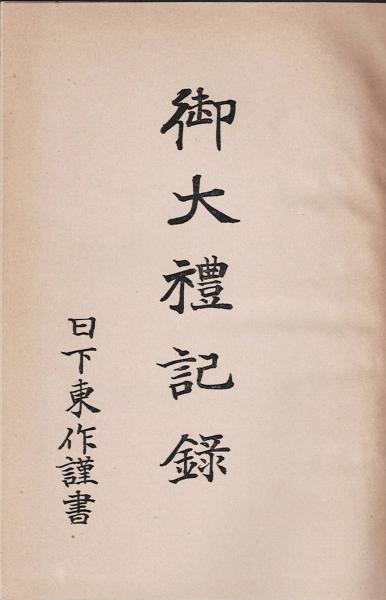 御大禮記錄
日下東作謹書